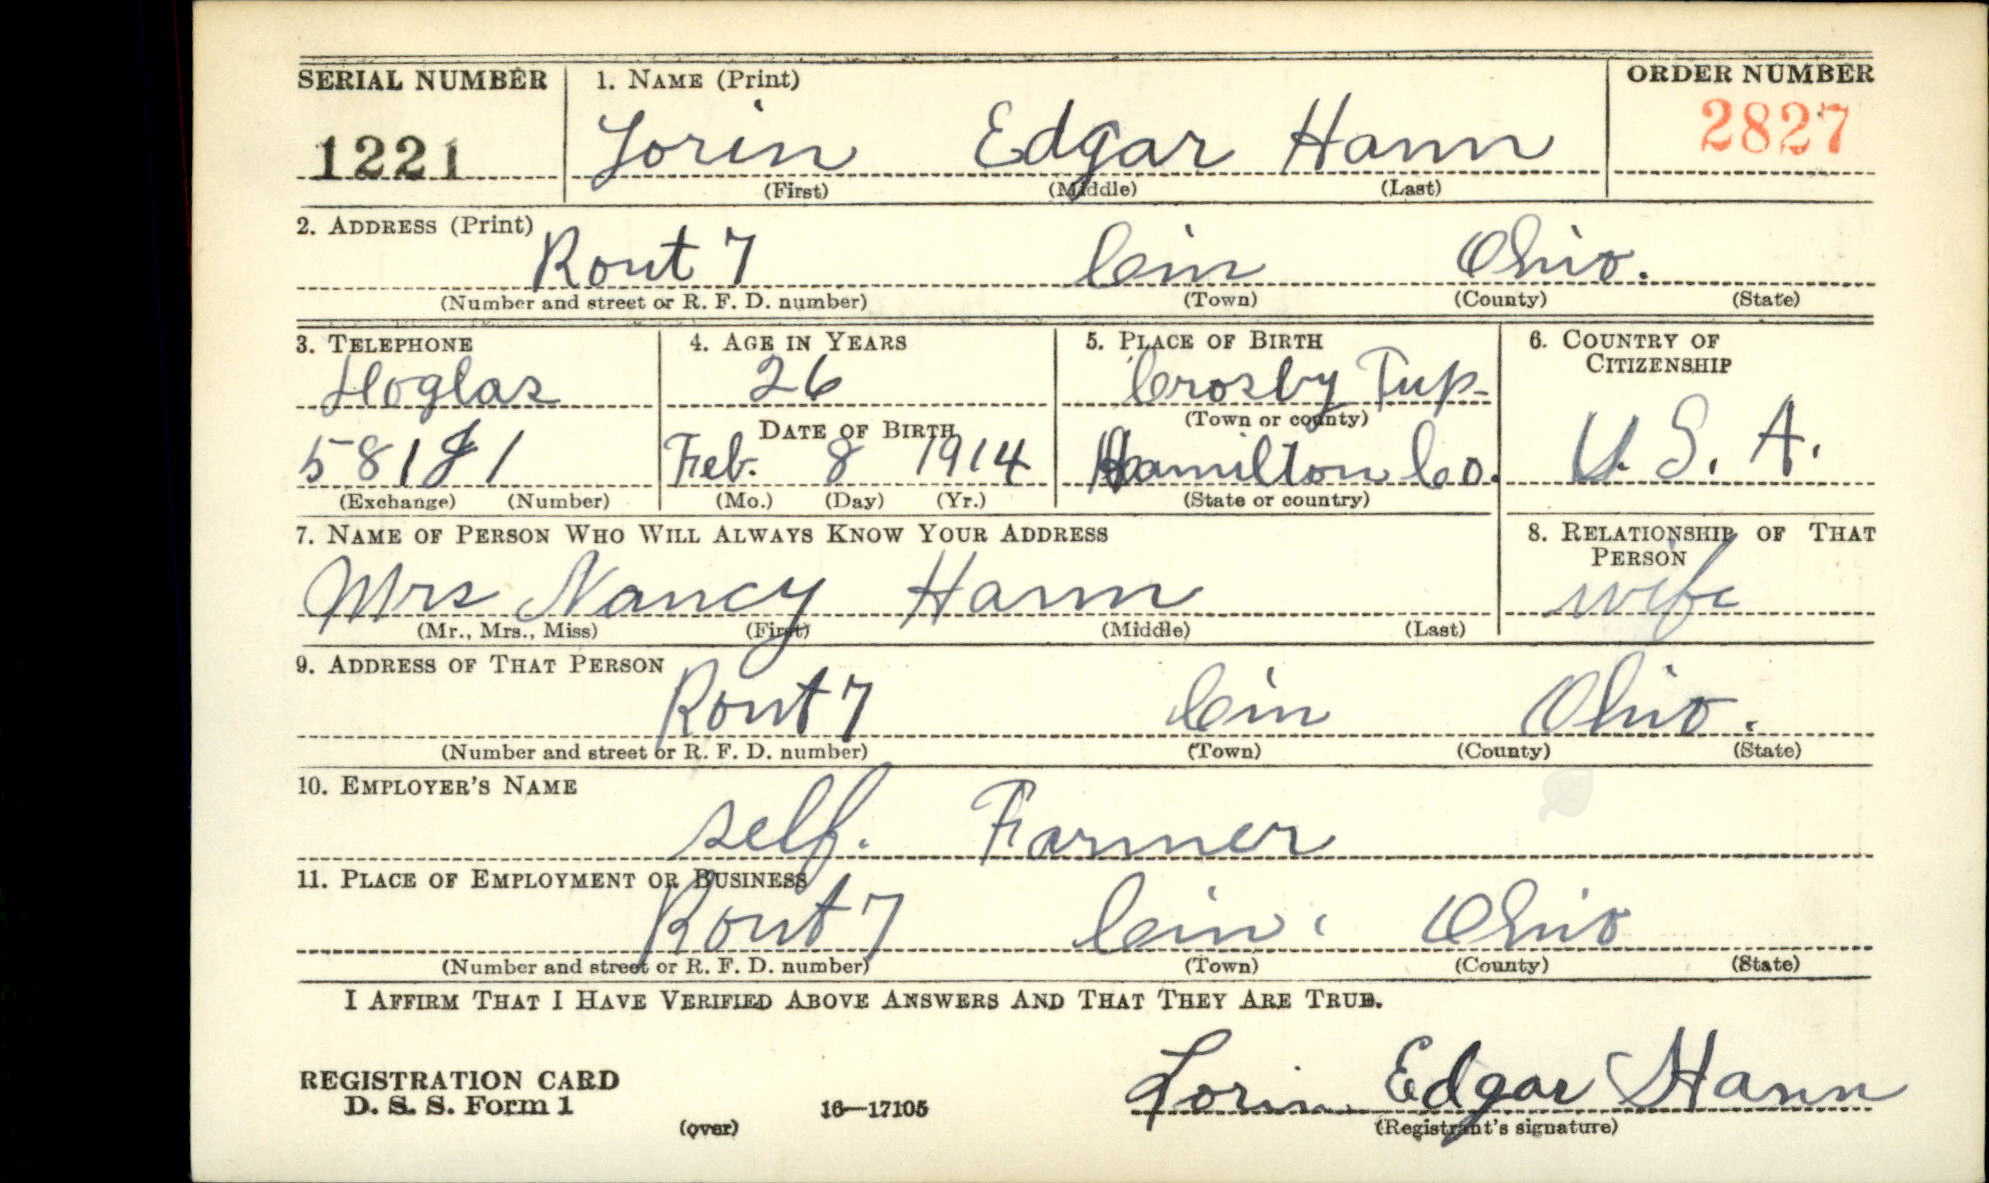 SERIAL NUMBER 1. NAME (Print) ORDER NUMBER
1221 Lorin Edgar Hann 2827
(First) (Middle) (Last)
2. ADDRESS (Print)
Rout 7 Cin Ohio.
(Number and street or R. F. D. number) (Town) (County) (State)
3. TELEPHONE 4. AGE IN YEARS 5. PLACE OF BIRTH 6. COUNTRY OF CITIZENSHIP
26 Crosby Tup-
DATE OF BIRTH (Town or county)
581J1 Feb. 8 1914 Hamilton Co. U. S. A.
(Exchange) (Number) (Mo.) (Day) (Yr.) (State or country)
7. NAME OF PERSON WHO WILL ALWAYS KNOW YOUR ADDRESS 8. RELATIONSHIP OF THAT PERSON
Mrs Nancy Hann wife
(Mr., Mrs., Miss) (First) (Middle) (Last)
9. ADDRESS OF THAT PERSON
Rout 7 Cin Ohio.
(Number and street or R. F. D. number) (Town) (County) (State)
10. EMPLOYER'S NAME
self. Farmer
11. PLACE OF EMPLOYMENT OR BUSINESS
Rout 7 Cin. Ohio
(Number and street or R. F. D. number) (Town) (County) (State)
I AFFIRM THAT I HAVE VERIFIED ABOVE ANSWERS AND THAT THEY ARE TRUE.
REGISTRATION CARD
D. S. S. Form 1 16—17105 Lorin Edgar Hann
(over) (Registrant's signature)